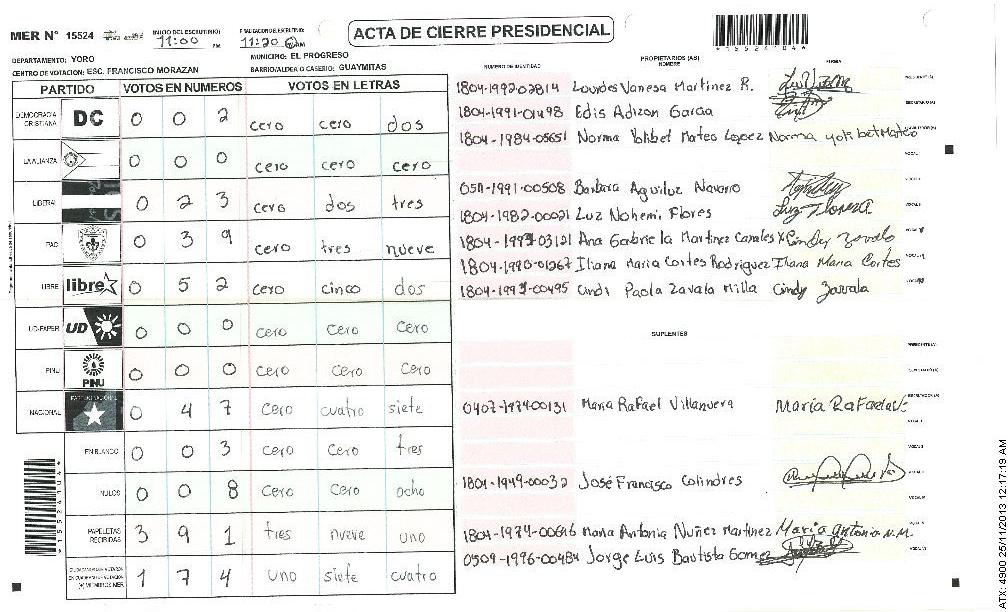 MER N° 15524 INICIO DEL ESCRUTINIO: 11:00 PM 11:20 AM
ACTA DE CIERRE PRESIDENCIAL
DEPARTAMENTO: YORO MUNICIPIO: EL PROGRESO
CENTRO DE VOTACION: ESC. FRANCISCO MORAZAN BARRIO/ALDEA O CASERIO: GUAYMITAS
PARTIDO VOTOS EN NUMEROS VOTOS EN LETRAS
DEMOCRACIA CRISTIANA DC 0 0 2 cero cero dos
LA ALIANZA 0 0 0 cero cero cero
LIBERAL 0 2 3 cero dos tres
PAC 0 3 9 cero tres nueve
LIBRE libre 0 5 2 cero cinco dos
UD-FAPER UD 0 0 0 cero cero cero
PINU PINU 0 0 0 cero cero cero
NACIONAL 0 4 7 cero cuatro siete
EN BLANCO 0 0 3 cero cero tres
NULOS 0 0 8 cero cero ocho
PAPELETAS RECIBIDAS 3 9 1 tres nueve uno
1 7 4 uno siete cuatro
NUMERO DE IDENTIDAD PROPIETARIOS (AS) NOMBRE FIRMA
1804-1992-02814 Lourdes Vanesa Martinez R.
1804-1991-01498 Edis Adizon Garcia
1804-1984-05651 Norma Mateo Lopez Norma
0511-1991-00508 Barbara Aguiluz Navarro
1804-1982-00021 Luz Nohemi Flores Luz Flores
Ana Gabriela Martinez Canales Cindy Zavala
1804-1990-01267 Iliana Maria Cortes Rodriguez Iliana Maria Cortes
Cindi Paola Zavala Milla Cindy Zavala
SUPLENTES
0407-1974-00131 Maria Rafael Villanueva María Rafaela V.
1804-1949-00032 José Francisco Colindres
1804-1974-00646 Maria Antonia Nuñez Martinez María Antonia N.M.
0509-1996-00484 Jorge Luis Bautista Gomez
ATX: 4900 25/11/2013 12:17:19 AM